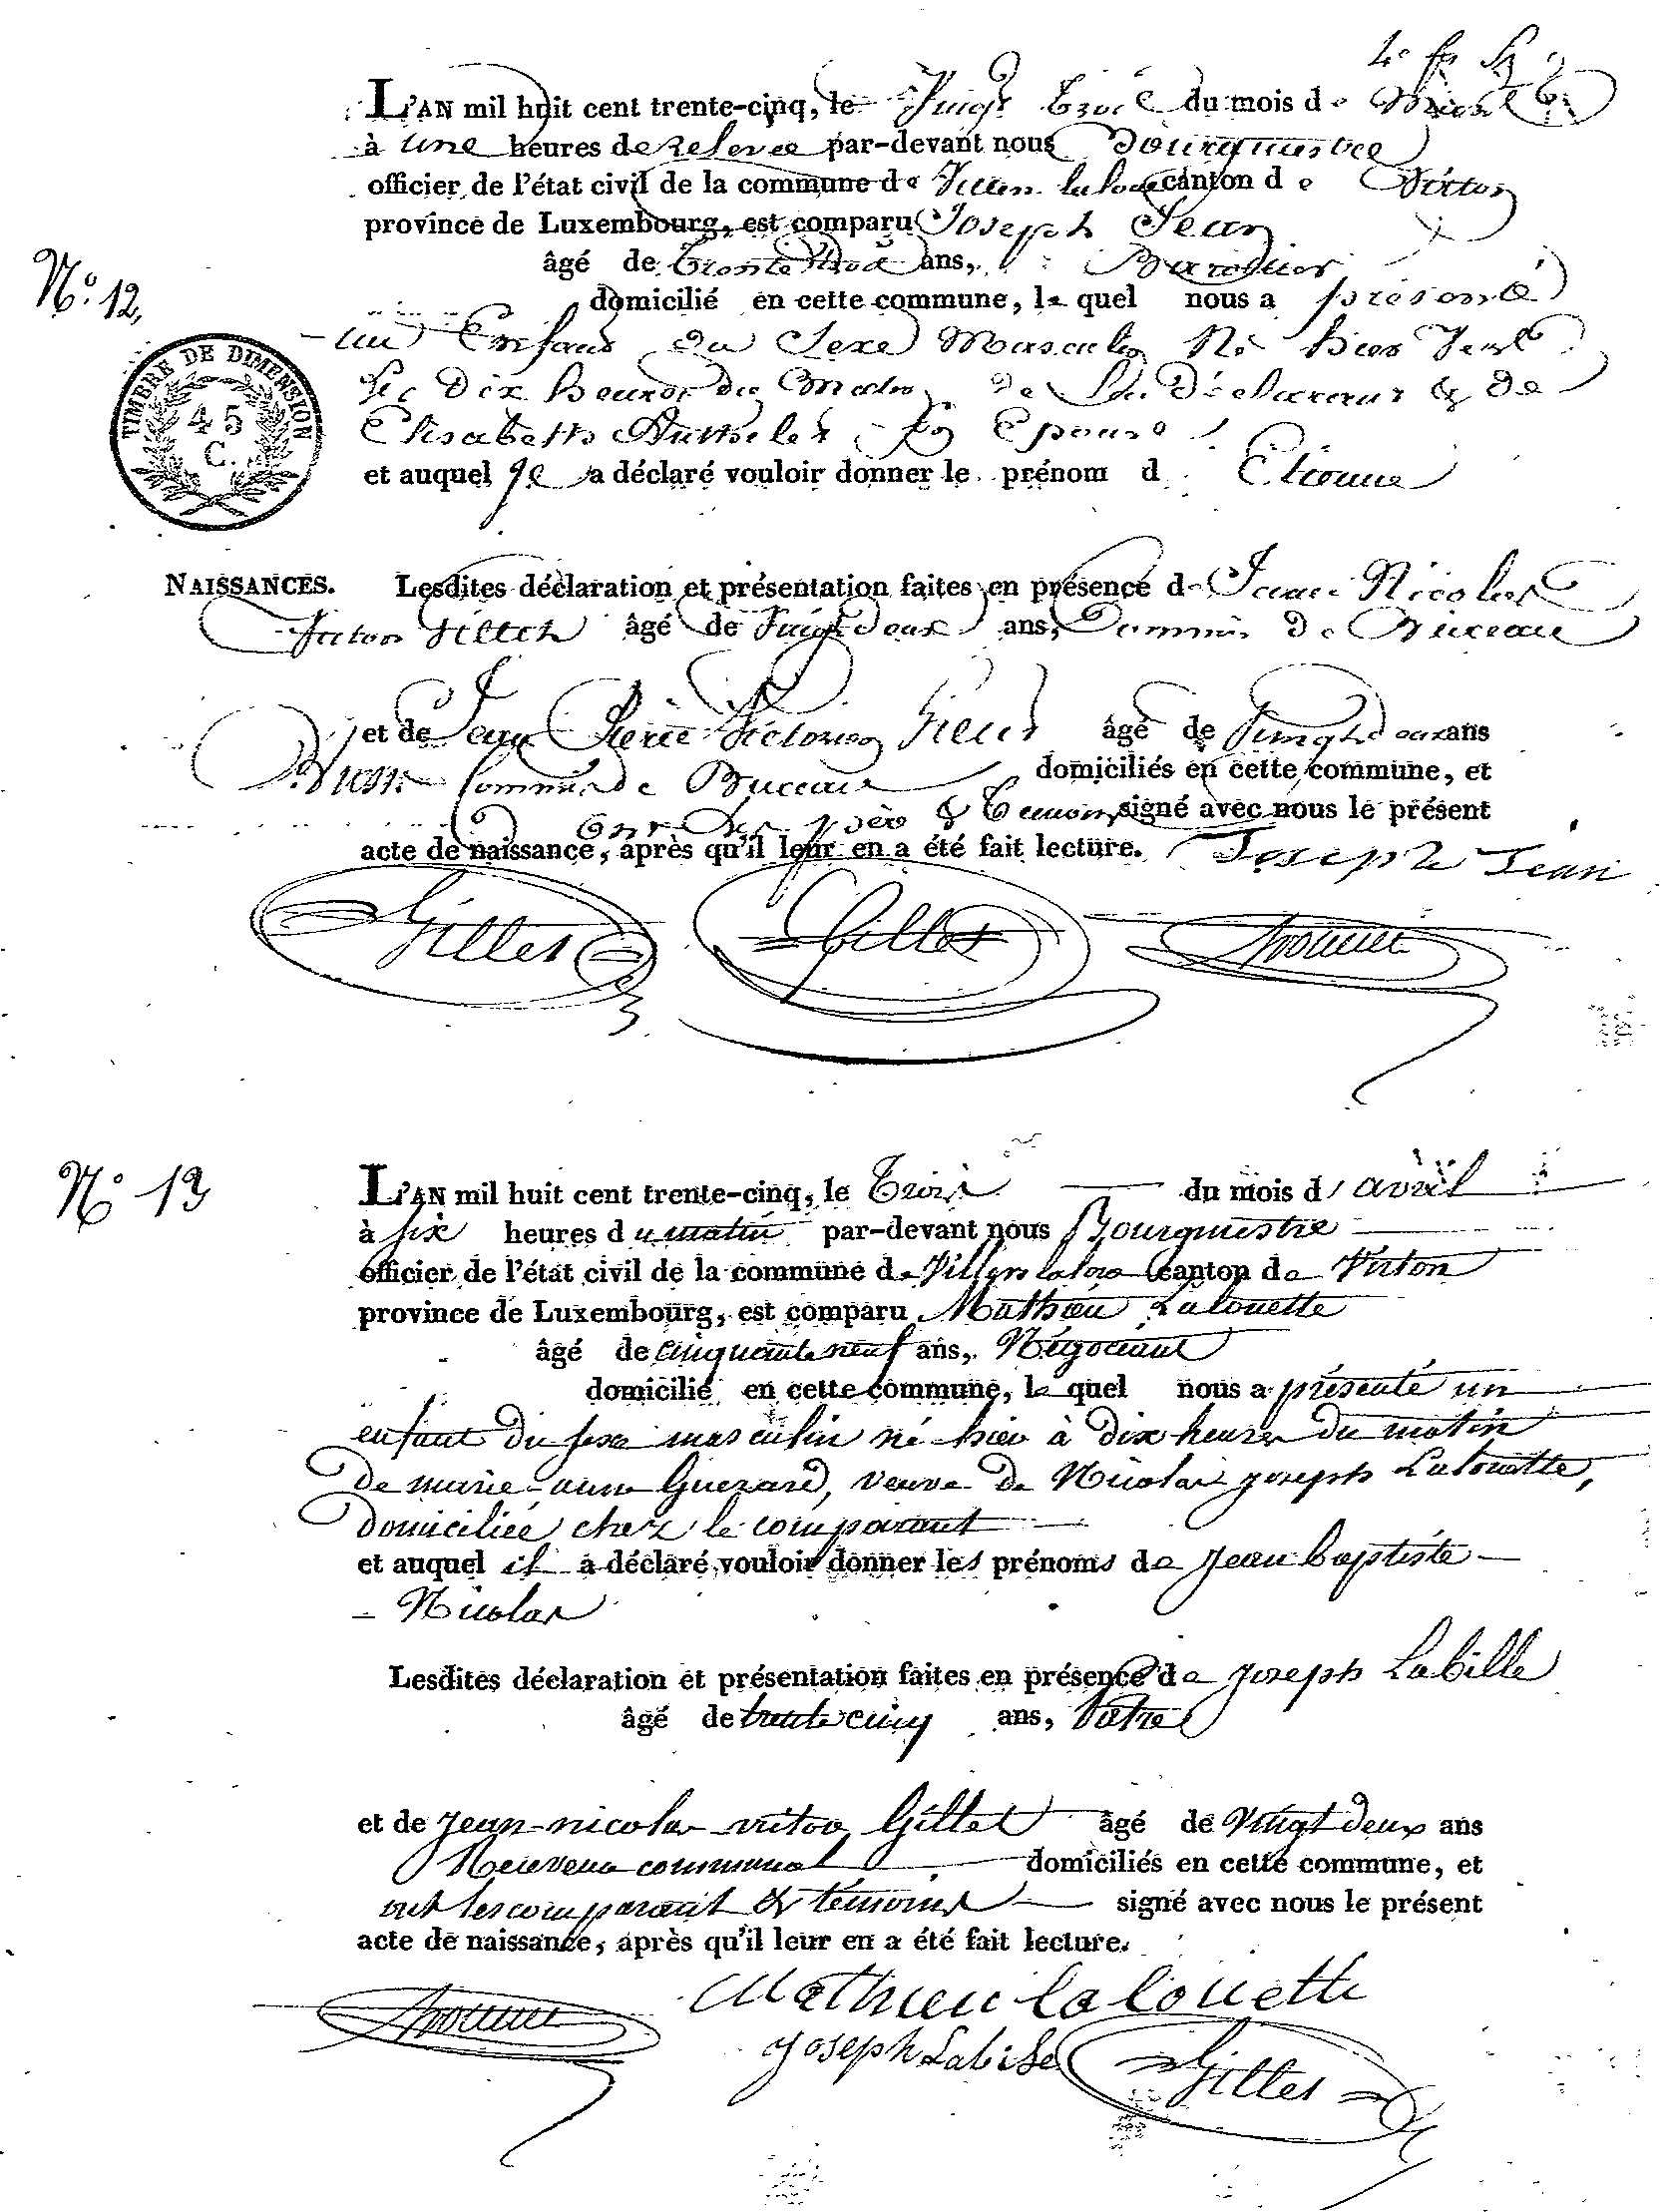 L'AN mil huit cent trente-cinq, le Vingt Trois du mois de Mars
à une heures de relevée par-devant nous Bourgmestre
officier de l'état civil de la commune de Villers la loue canton de Virton
province de Luxembourg, est comparu Joseph Jean
âgé de trente ans,
N.º 12,
domicilié en cette commune, le quel nous a présenté
un Enfant du Sexe Masculin Né hier Vers
les dix heures du Matin de lui déclarant & de
Elisabeth son Epouse
TIMBRE DE DIMENSION
45
C.
et auquel il a déclaré vouloir donner le prénom d Etienne
NAISSANCES. Lesdites déclaration et présentation faites en présence de Jean Nicolas
Victor Gillet âgé de Vingt deux ans, Commis de Bureau
et de Jean Pierre Victorien âgé de Vingt deux ans
Commis de Bureau domiciliés en cette commune, et
Ont Les père & Temoins signé avec nous le présent
acte de naissance, après qu'il leur en a été fait lecture. Joseph Jean
Gillet Gillet
Nº 13
L'AN mil huit cent trente-cinq, le Trois du mois d'avril
à six heures du matin par-devant nous Bourgmestre
officier de l'état civil de la commune de Villers la loue canton de Virton
province de Luxembourg, est comparu Mathieu Lalouette
âgé de cinquante neuf ans, Négociant
domicilié en cette commune, le quel nous a présenté un
enfant du sexe masculin né hier à dix heures du matin
de marie-anne Guerard, veuve de Nicolas joseph Lalouette,
domiciliée chez le comparant
et auquel il a déclaré vouloir donner les prénoms de jean baptiste
- Nicolas
Lesdites déclaration et présentation faites en présence de joseph Labille
âgé de trente cinq ans, Patre
et de jean-nicolas-victor Gillet âgé de vingt deux ans
Receveur communal domiciliés en cette commune, et
ont les comparant & témoins signé avec nous le présent
acte de naissance, après qu'il leur en a été fait lecture.
Mathieu lalouette
joseph Labille Gillet